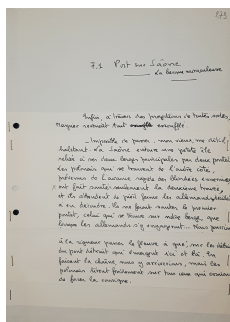 873
7.1 Port sur Saône
La bonne manoeuvre
Enfin, à travers des populations de toutes sortes,
Wagner revenait tout essoufflé
– Impossible de passer, mon vieux, me dit-il,
haletant. La Saône entoure une petite île
reliée à ses deux berges principales par deux ponts.
Les polonais qui se trouvent de l'autre côté,
prévenus de l'avance rapide des blindés ennemis
ont fait sauter seulement la deuxième travée,
et ils attendent de pied ferme les allemands
ou en découdre. Ils ne feront sauter le premier
pont, celui qui se trouve sur notre berge, que
lorsque les allemands s'y engageront... Nous pourrions
à la rigueur passer le fleuve à gué, sur les débris
du pont détruit qui émergent ici et là. En
faisant la chaîne, nous y arriverions, mais les
polonais tirent facilement sur tous ceux qui essaient
de forcer la consigne.